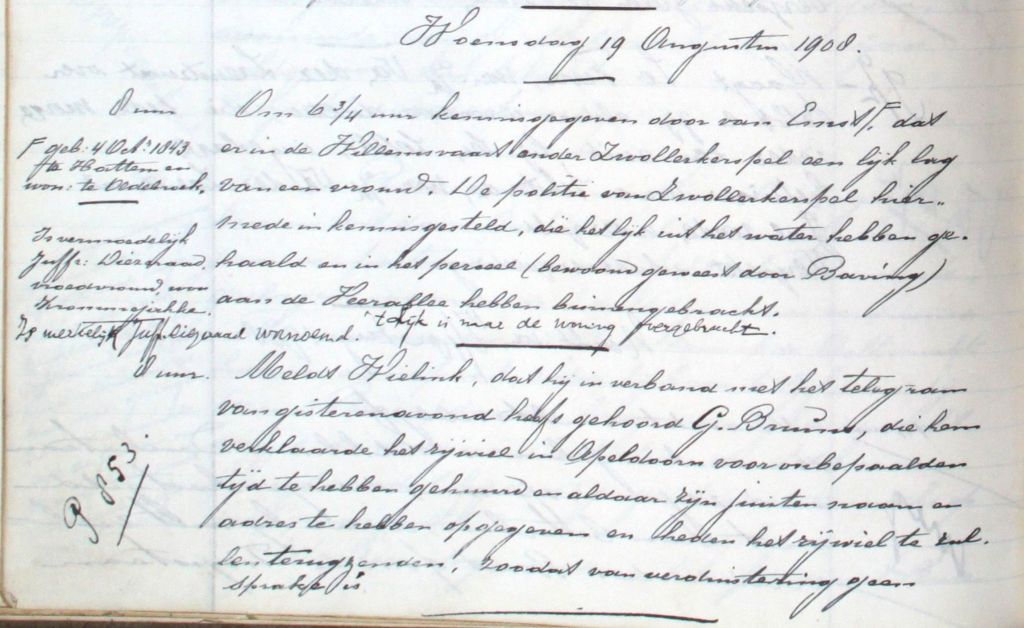 Woensdag 19 Augustus 1908.
8 uur
Om 6 3/4 uur kennisgegeven door van Ernst F. dat
er in de Willemsvaart onder Zwollerkerspel een lijk lag
van een vrouw. De politie van Zwollerkerspel hier-
mede in kennis gesteld, die het lijk uit het water hebben ge-
haald en in het perceel (bewoond geweest door Baving)
aan de Veerallee hebben binnengebracht.
't Lijk is naar de woning overgebracht.
F geb: 4 Oct: 1843
te Hattem en
won: te Oldebroek.
Is vermoedelijk
Juffr: Diezraad,
vroedvrouw, won
Krommejakke.
Is werkelijk Juf.
8 uur.
Meldt Wielink, dat hij in verband met het telegram
van gisterenavond heeft gehoord G. Bruins, die hem
verklaarde het rijwiel in Apeldoorn voor onbepaalden
tijd te hebben gehuurd en aldaar zijn juisten naam en
adres te hebben opgegeven en heden het rijwiel te zul-
len terugzenden, zoodat van verduistering geen
sprake is
P 853